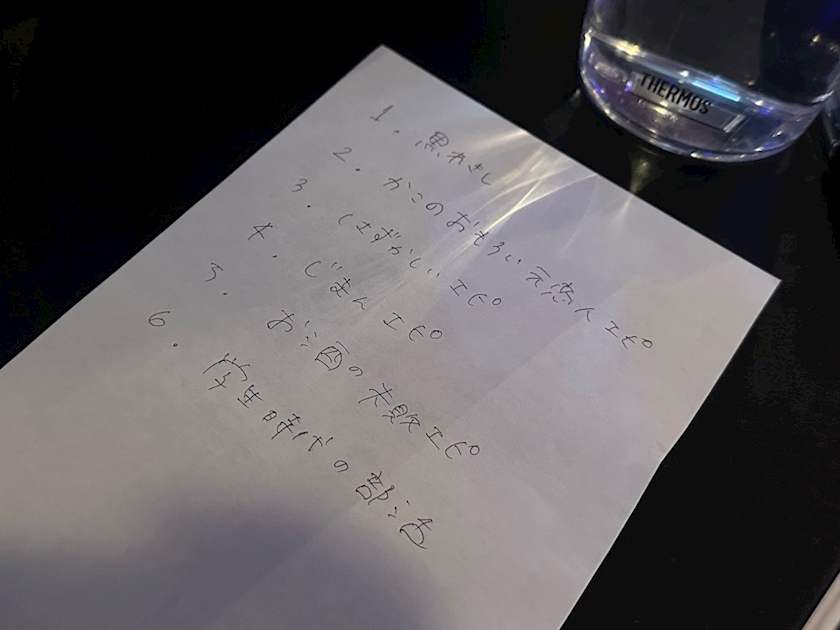 THERMOS
1. 黒れきし
2. かこのおもろい元恋人エピ
3. はずかしいエピ
4. じまんエピ
5. お酒の失敗エピ
6. 学生時代の部活